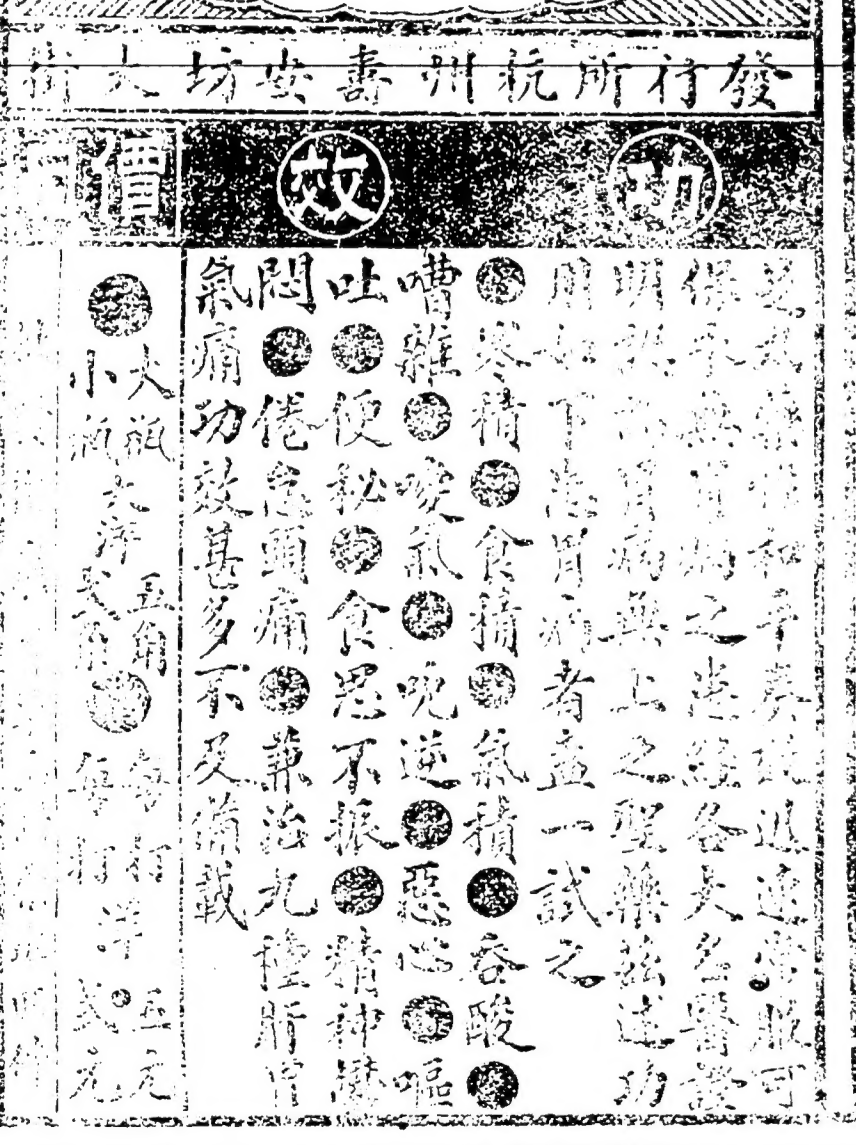 發行所杭州壽安坊大街
功效
價
之其藥性和平奏效迅速常服可
保永無胃病之患經各大名醫證
明洵為胃病無上之聖藥茲述功
用如下患胃病者盍一試之
寒積 食積 氣積 吞酸
嘈雜 噯氣 呃逆 惡心 嘔
吐 便秘 食思不振 精神鬱
悶 倦怠頭痛 兼治九種肝胃
氣痛功效甚多不及備載
大瓶 大洋五角 每打洋五元
小瓶